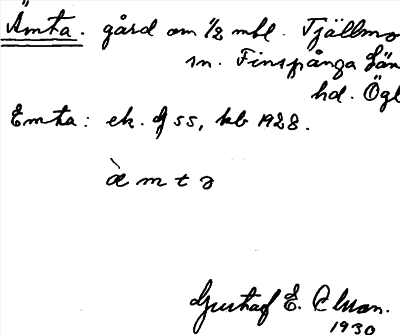 Ämta. gård om 1/2 mtl. Tjällmo
sn. Finspånga län
hd. Ögl
Emta: ek. 55, kb 1928.
æ̀ m t ə
Gustaf E.
1930